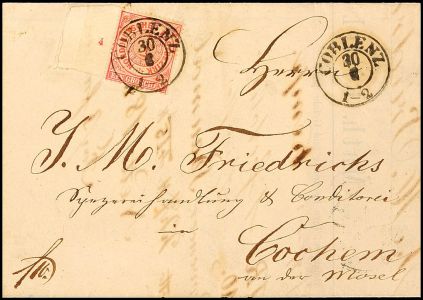 COBLENZ
30
6
1-2
COBLENZ
30
6
1-2
Herrn
J. M. Friedrichs
Spezereihandlung & Conditorei
Cochem
an der Mosel